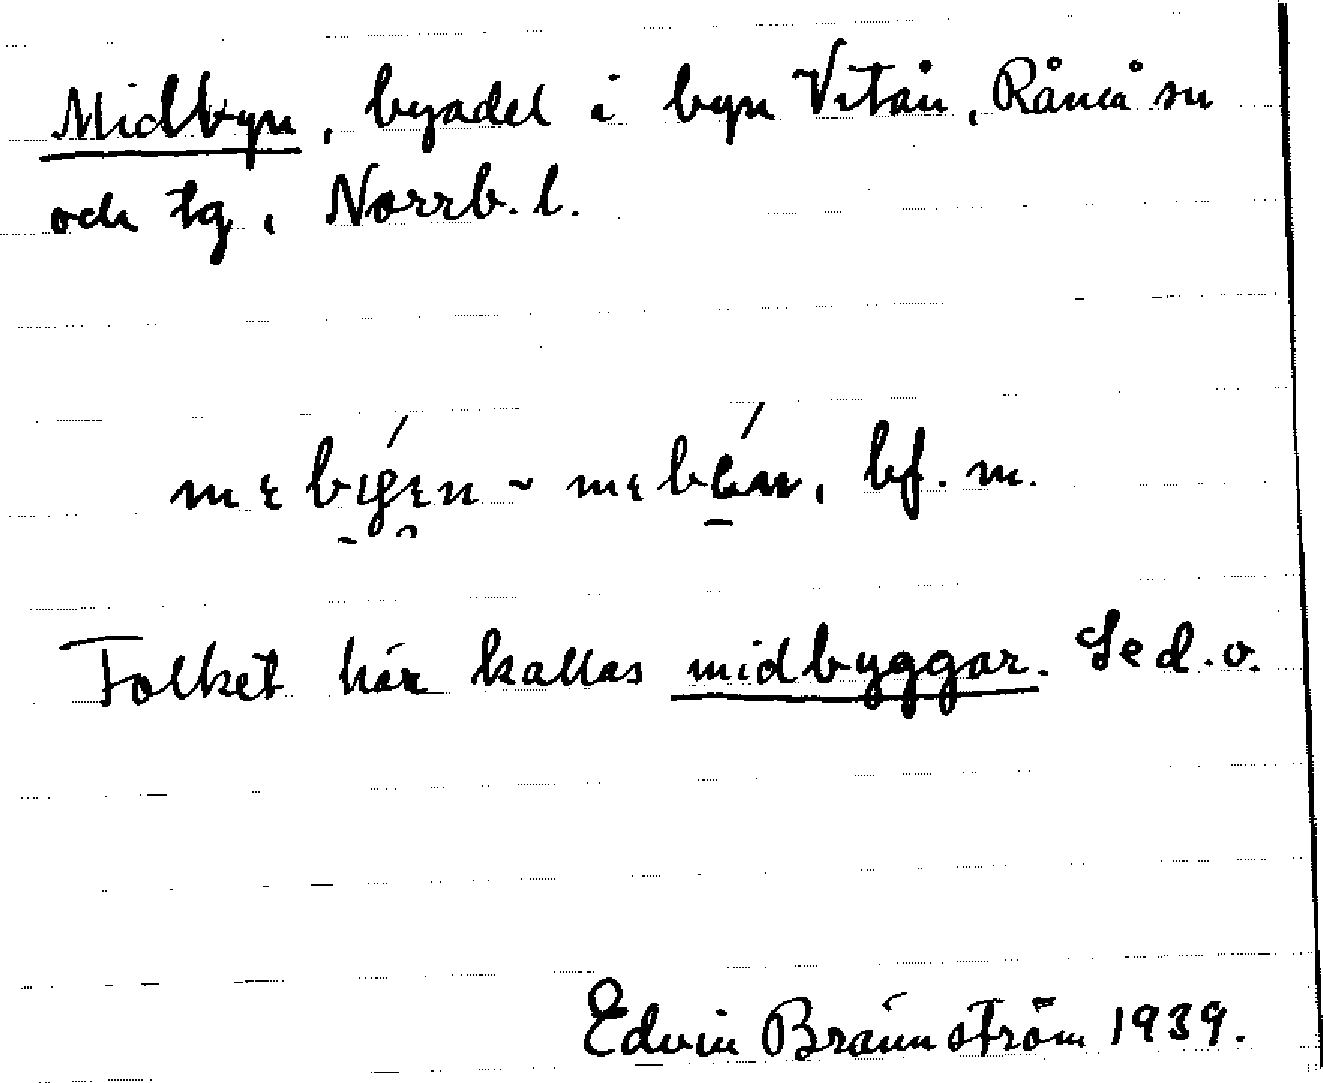 Midbyn, byadel i byn Vitån, Råneå sn
och tg, Norrb. l.
bf. m.
Folket här kallas midbyggar. Se d. o.
Edvin Brännström 1939.